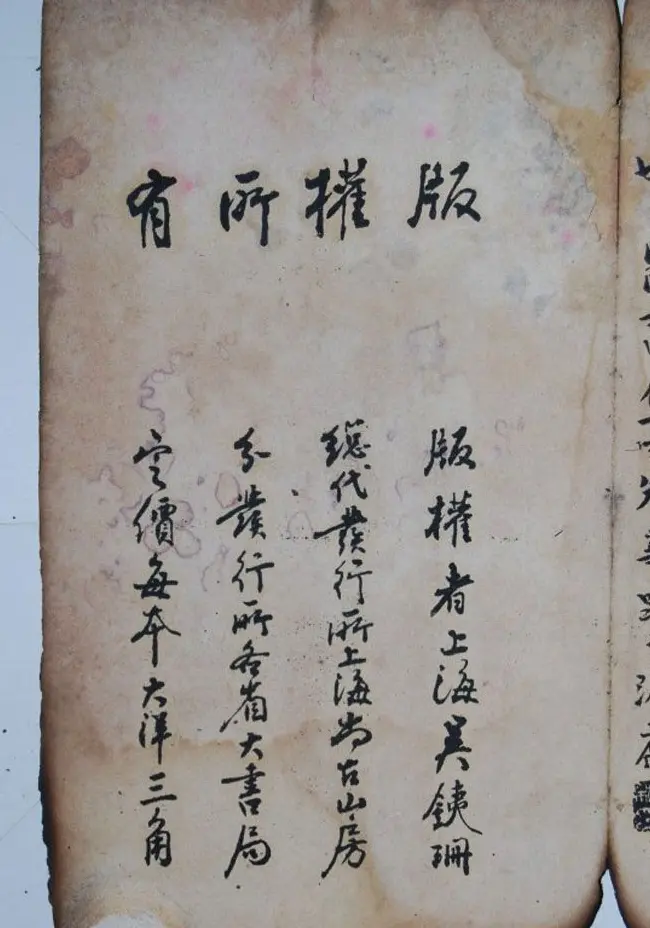 版權所有
版權者上海吳銕珊
總代發行所上海尚古山房
分發行所各省大書局
定價每本大洋三角